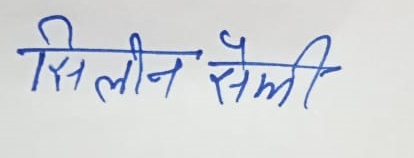 सिलीन सैली